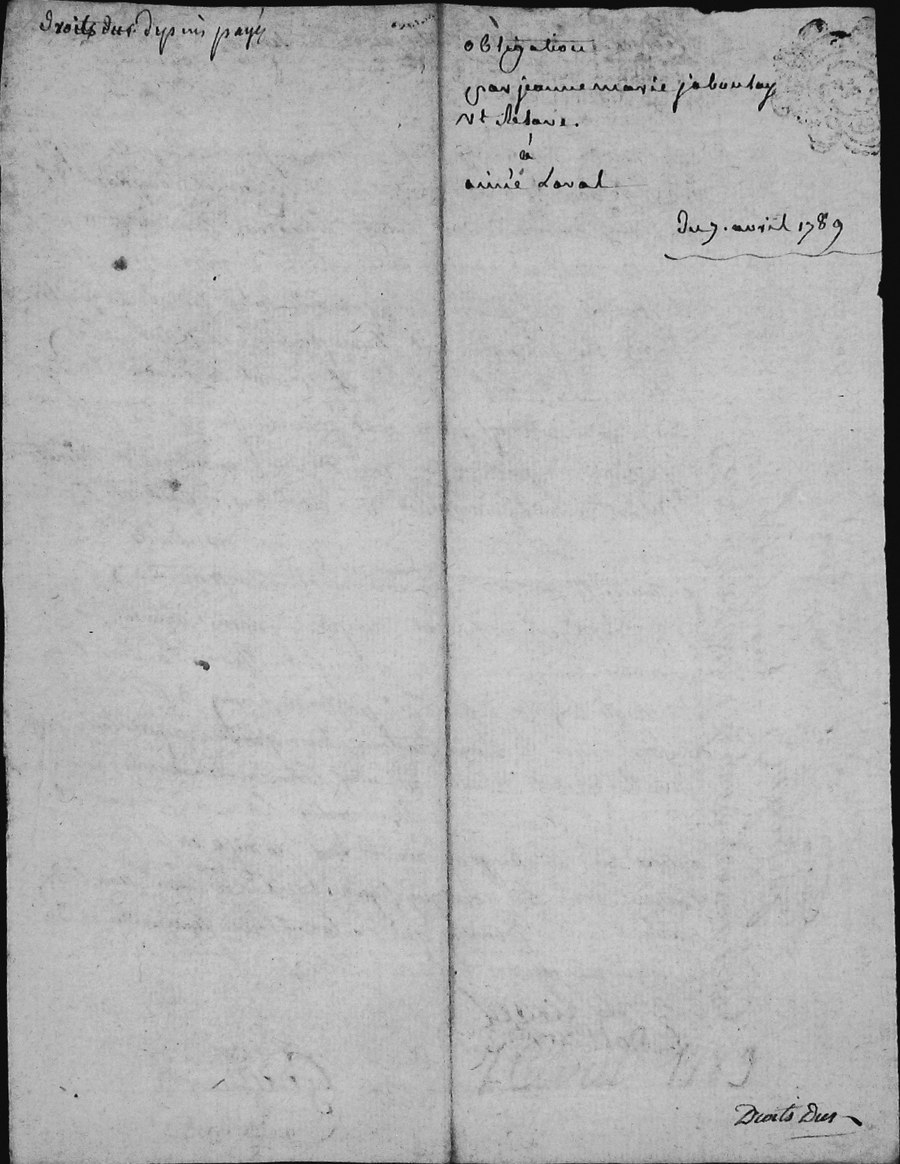 Droits dus depuis payés
obligation
par jeanne marie jaboulay
Ve
à
aimé Laval
du 7. avril 1789
Droits Dus